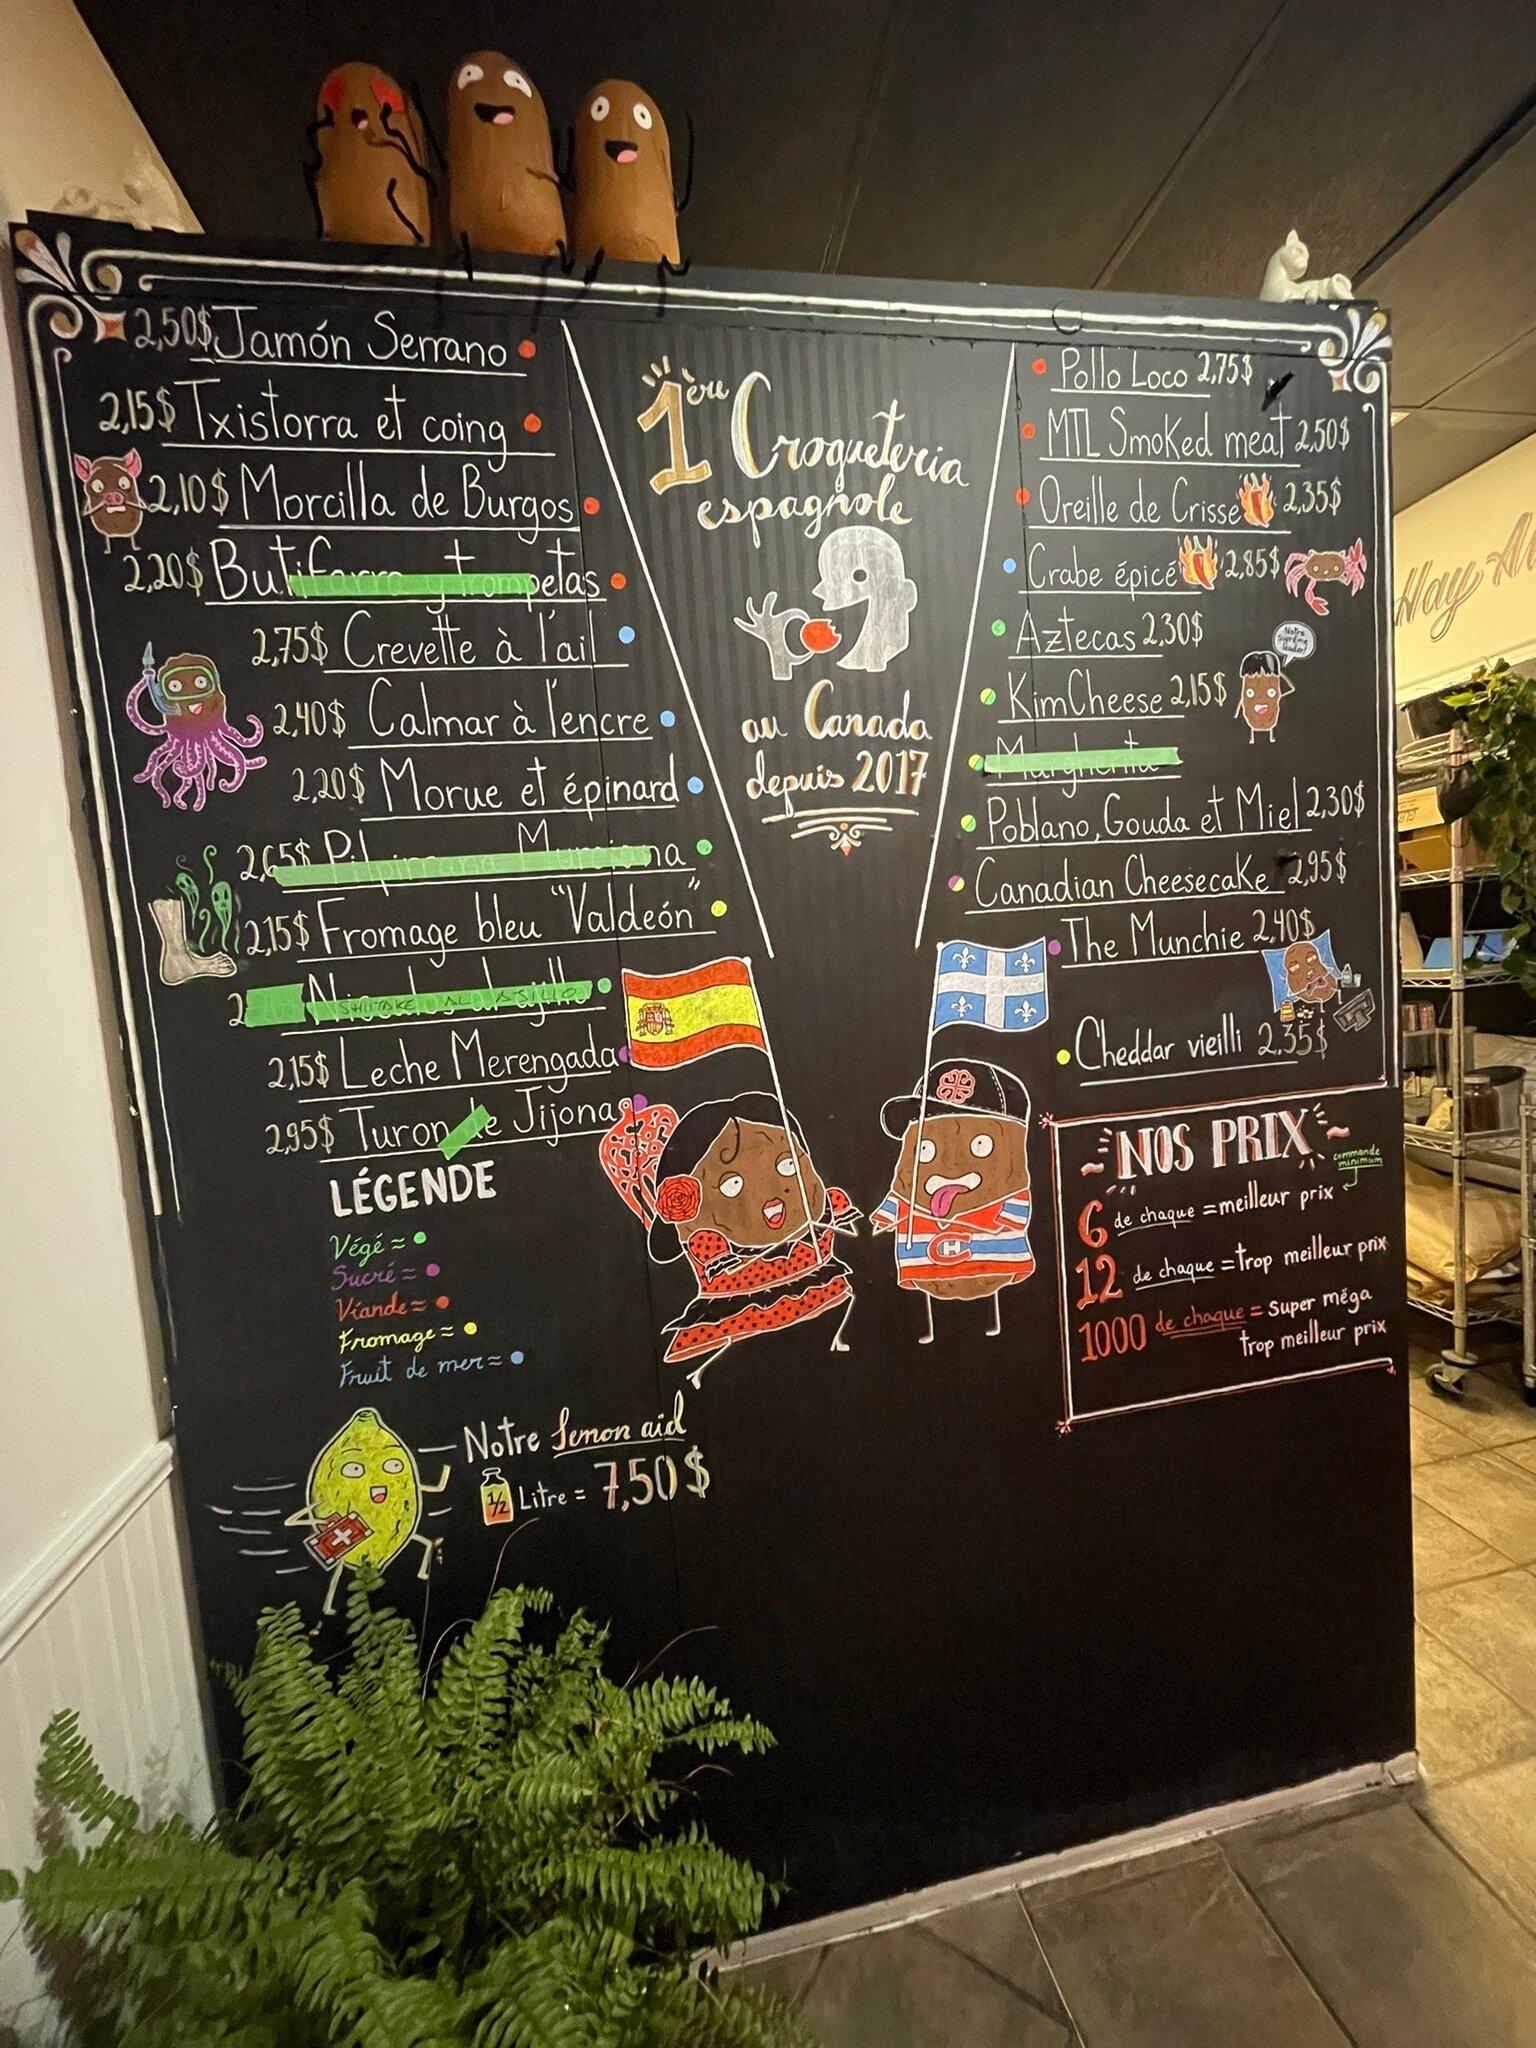 2,50$ Jamón Serrano
2,15$ Txistorra et coing
2,10$ Morcilla de Burgos
2,20$ Butifarra y trompetas
2,75$ Crevette à l'ail
2,40$ Calmar à l'encre
2,20$ Morue et épinard
2,65$
2,15$ Fromage bleu "Valdeón"
SHIITAKE AL AJILLO
2,15$ Leche Merengada
2,95$ Turon de Jijona
LÉGENDE
Végé =
Sucré =
Viande =
Fromage =
Fruit de mer =
Notre lemon aid
1/2 Litre = 7,50$
1ère Croqueteria
espagnole
au Canada
depuis 2017
Pollo Loco 2,75$
MTL Smoked meat 2,50$
Oreille de Crisse 2,35$
Crabe épicé 2,85$
Aztecas 2,30$
Notre
suprême
leader!
KimCheese 2,15$
Margherita
Poblano, Gouda et Miel 2,30$
Canadian Cheesecake 2,95$
The Munchie 2,40$
Cheddar vieilli 2,35$
CH
NOS PRIX
commande
minimum
6 de chaque = meilleur prix
12 de chaque = trop meilleur prix
1000 de chaque = super méga
trop meilleur prix
Hay